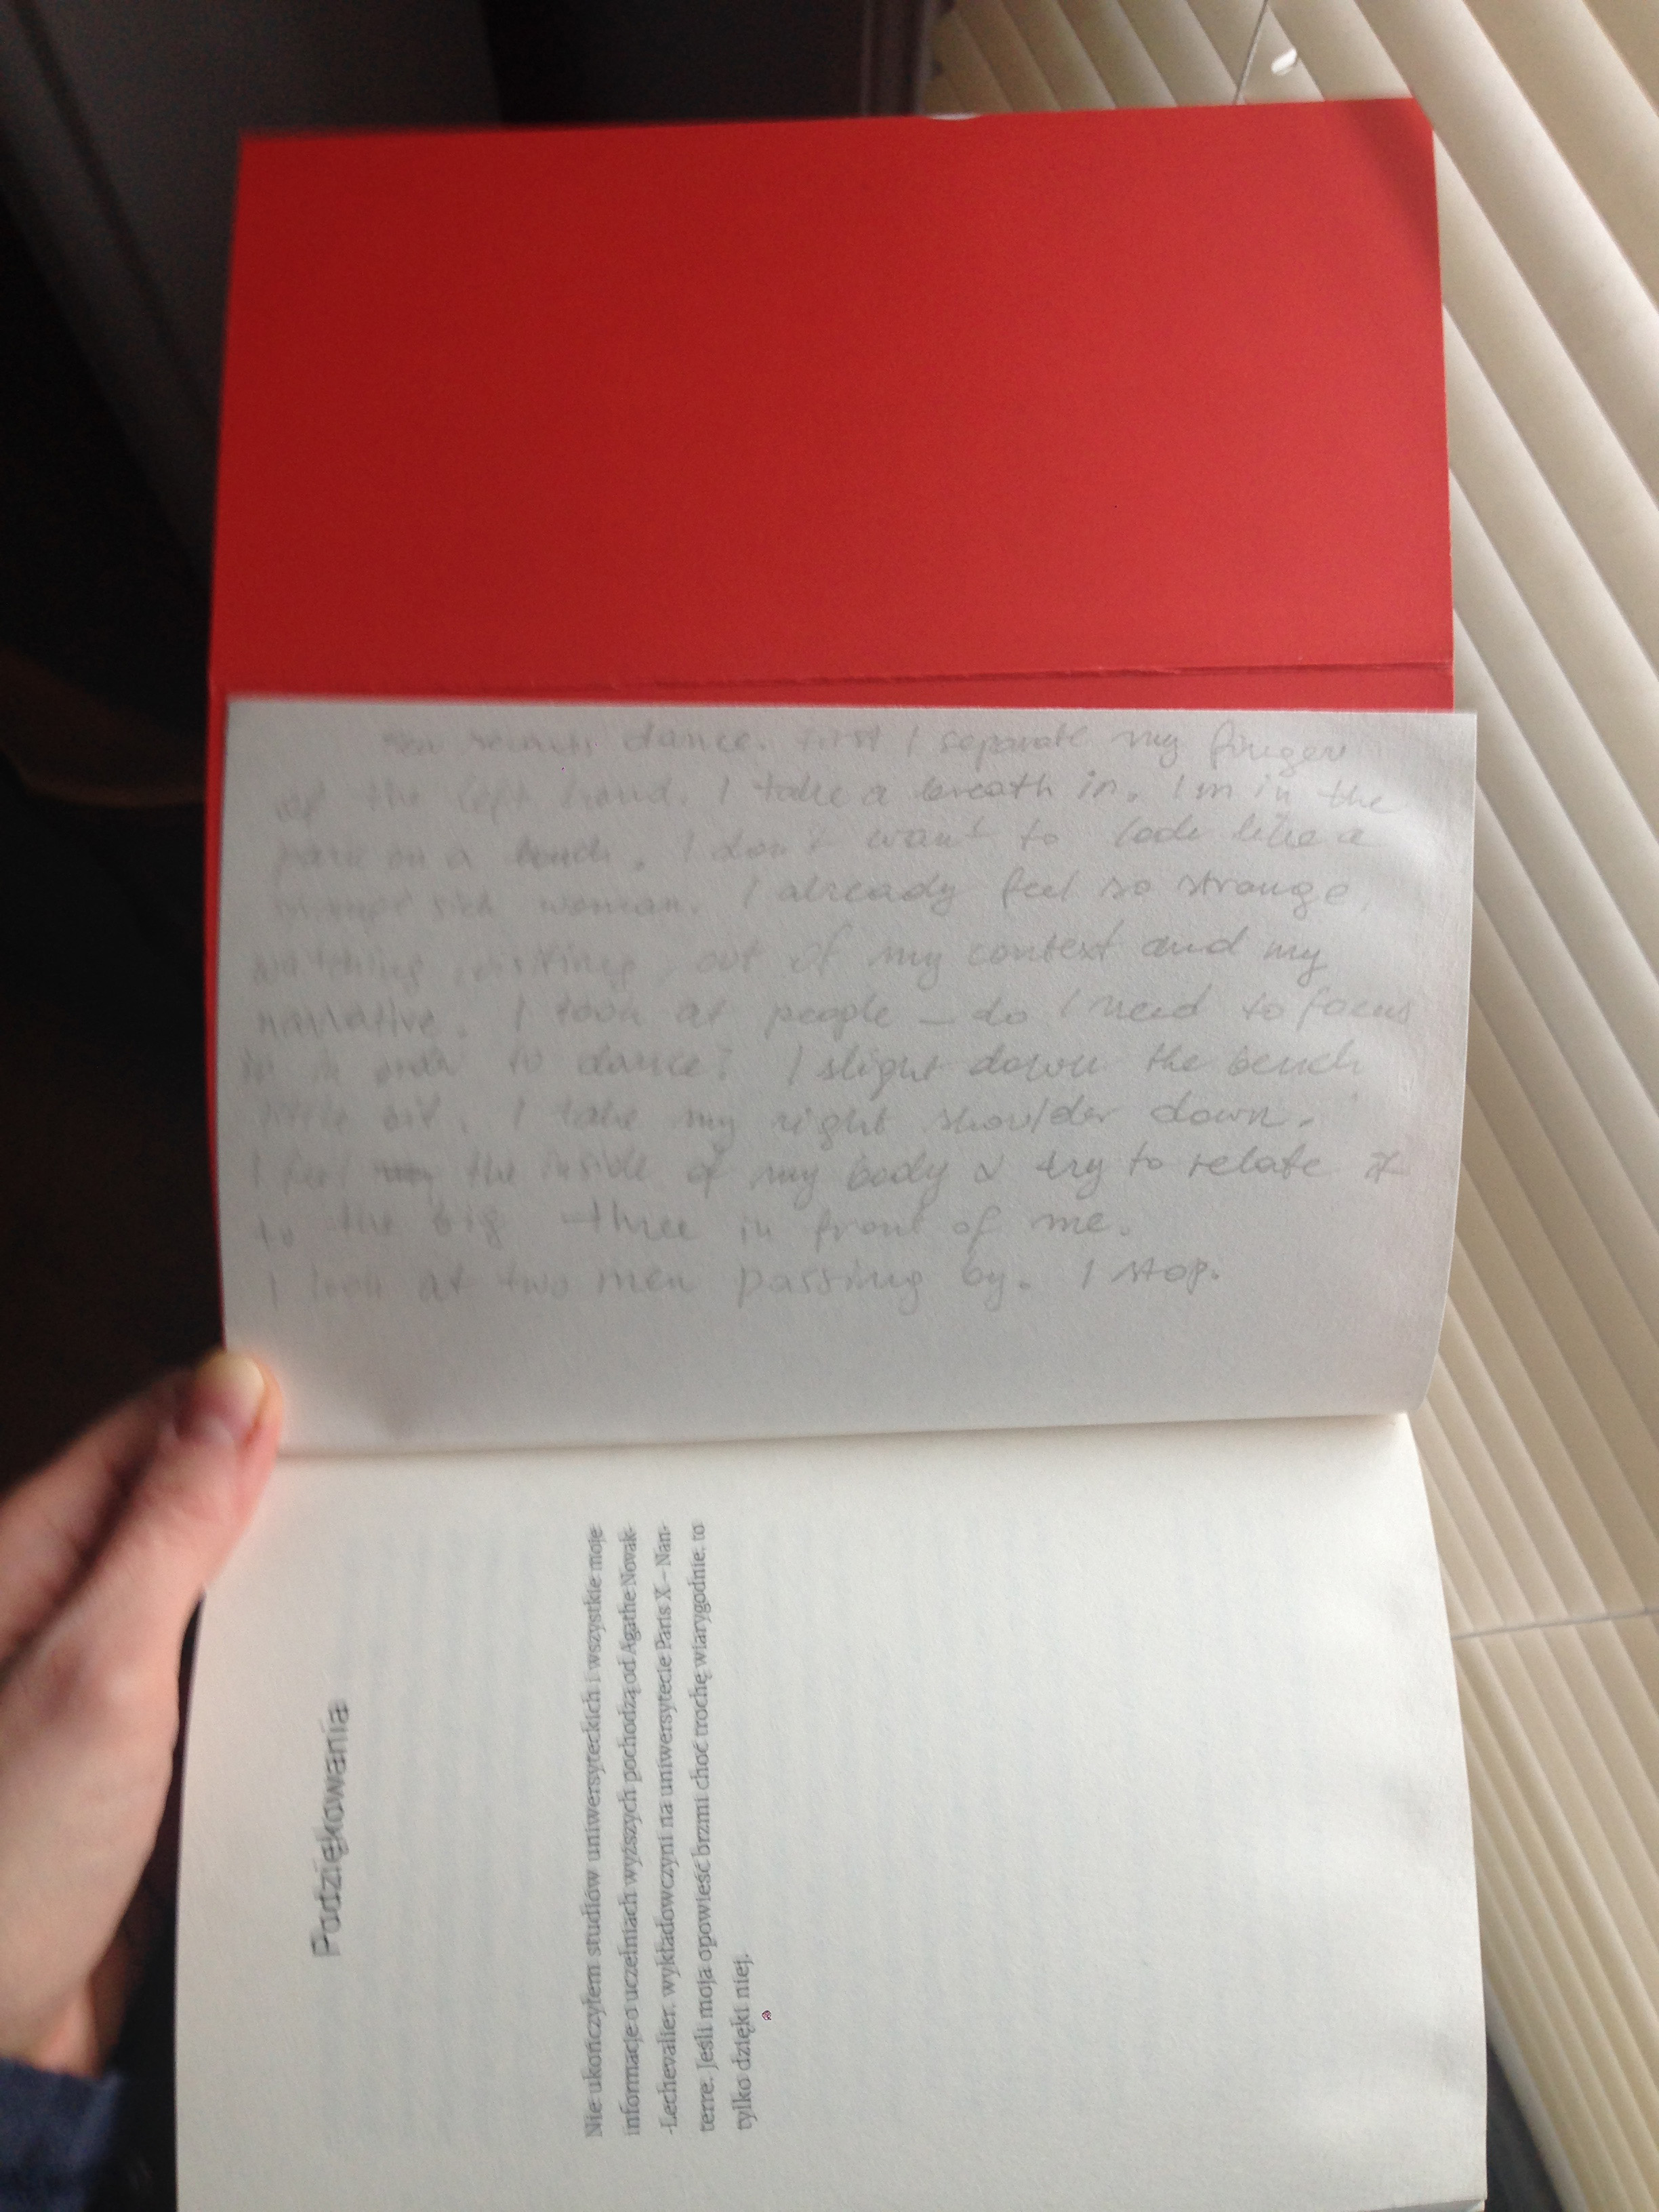 dance. First I separate my finger
of the left hand. I take a breath in. I'm in the
park on a bench. I don't want to look like a
sick woman. I already feel so strange,
watching, visiting, out of my context and my
narrative. I look at people – do I need to focus
in order to dance? I slight down the bench
little bit. I take my right shoulder down.
I feel the inside of my body & try to relate it
to the big three in front of me.
I look at two men passing by. I stop.
Podziękowania
Nie ukończyłem studiów uniwersyteckich i wszystkie moje
informacje o uczelniach wyższych pochodzą od Agathe Novak-
-Lechevalier, wykładowczyni na uniwersytecie Paris X – Nan-
terre. Jeśli moja opowieść brzmi choć trochę wiarygodnie, to
tylko dzięki niej.